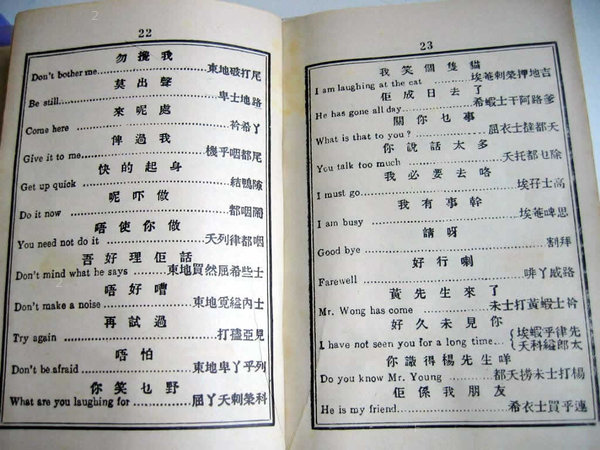 22
勿攪我
Don't bother me 東地破打尾
莫出聲
Be still 卑士地路
來呢處
Come here 衿希丫
俾過我
Give it to me 機乎咽都尾
快的起身
Get up quick 結鴨隙
呢吓做
Do it now 都咽閙
唔使你做
You need not do it 天列律都咽
吾好理佢話
Don't mind what he says 東地買然屈希些士
唔好嘈
Don't make a noise 東地覓縊內士
再試過
Try again
唔怕
Don't be afraid 東地卑丫乎列
你笑乜野
What are you laughing for 屈丫天刺榮科
23
我笑個隻貓
I am laughing at the cat 埃菴刺榮押地吉
佢成日去了
He has gone all day 希蝦士干阿路爹
關你乜事
What is that to you? 屈衣士撻都天
你說話太多
You talk too much 天托都乜除
我必要去咯
I must go 埃孖士高
我有事幹
I am busy 埃菴啤思
請呀
Good bye 割拜
好行喇
Farewell 啡丫威路
黃先生來了
Mr. Wong has come 未士打黃蝦士衿
好久未見你
I have not seen you for a long time. 埃蝦乎律先
天科縊郎太
你識得楊先生咩
Do you know Mr. Young 都天撈未士打楊
佢係我朋友
He is my friend 希衣士買乎連